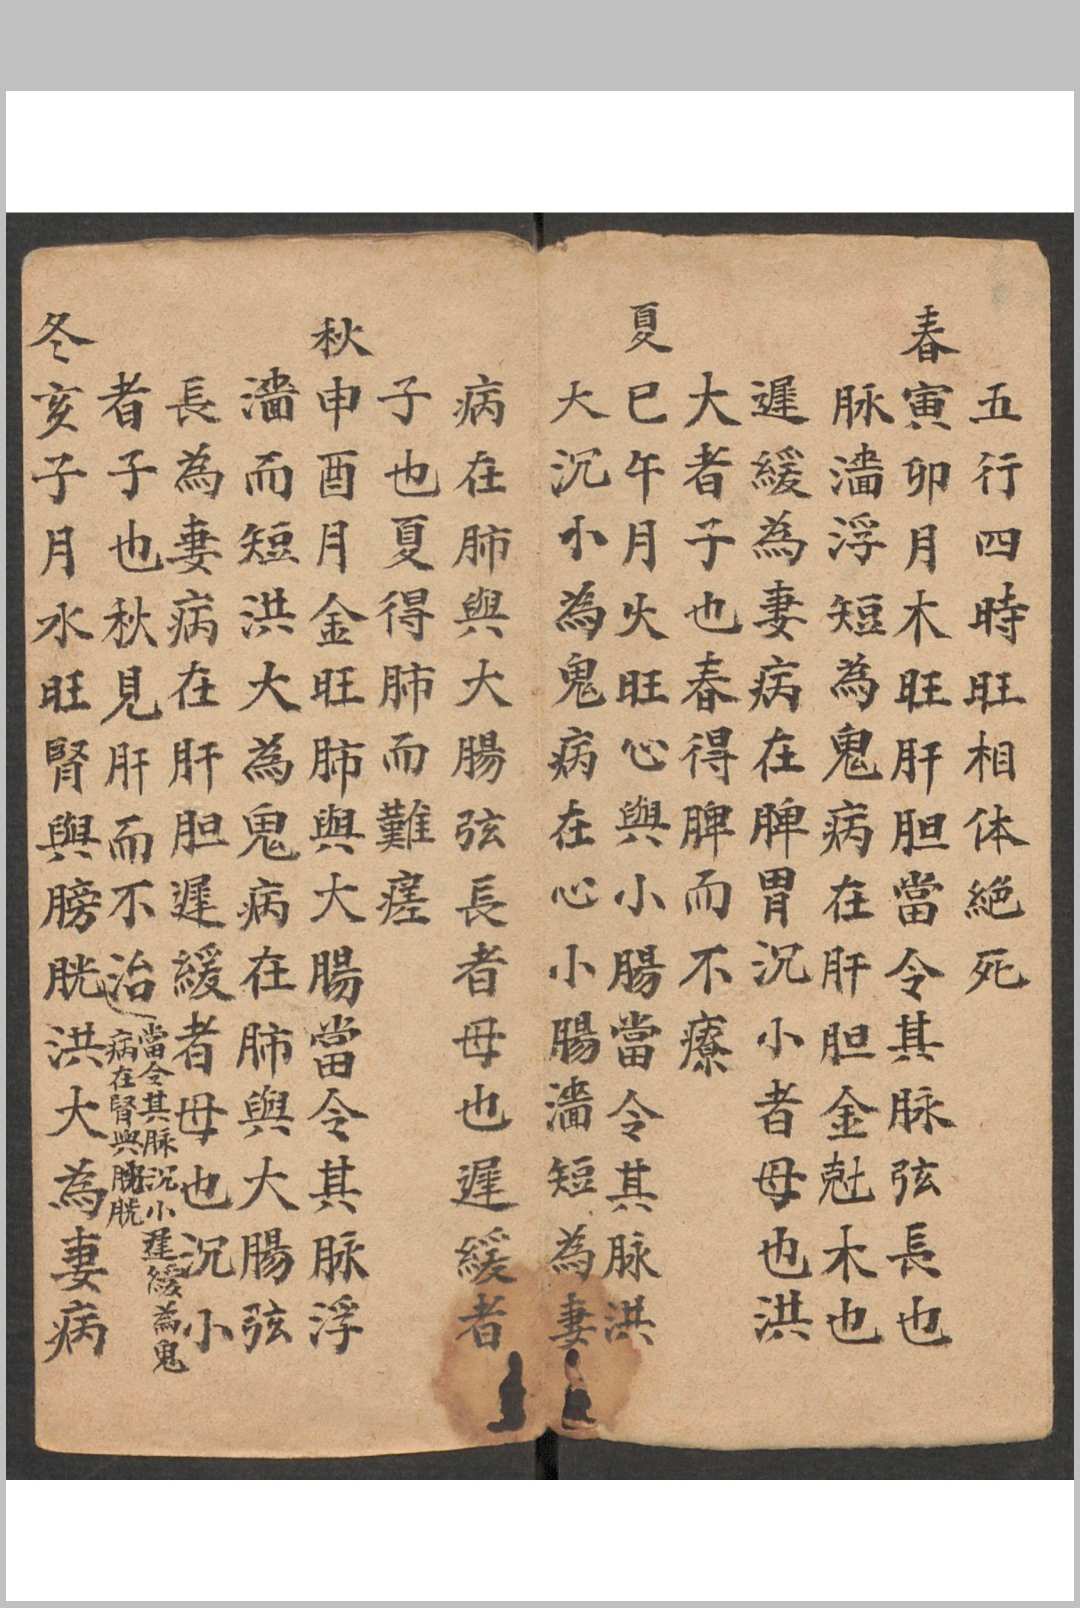 五行四時旺相体絶死
春寅卯月木旺肝胆當令其脉弦長也
脉濇浮短為鬼病在肝胆金尅木也
遲緩為妻病在脾胃沉小者母也洪
大者子也春得脾而不療
夏巳午月火旺心與小腸當令其脉洪
大沉小為鬼病在心小腸濇短為妻
病在肺與大腸弦長者母也遲緩者
子也夏得肺而難瘥
秋申酉月金旺肺與大腸當令其脉浮
濇而短洪大為鬼病在肺與大腸弦
長為妻病在肝胆遲緩者母也沉小
者子也秋見肝而不治
當令其脉沉小遲緩為鬼
病在腎與膀胱
冬亥子月水旺腎與膀胱洪大為妻病